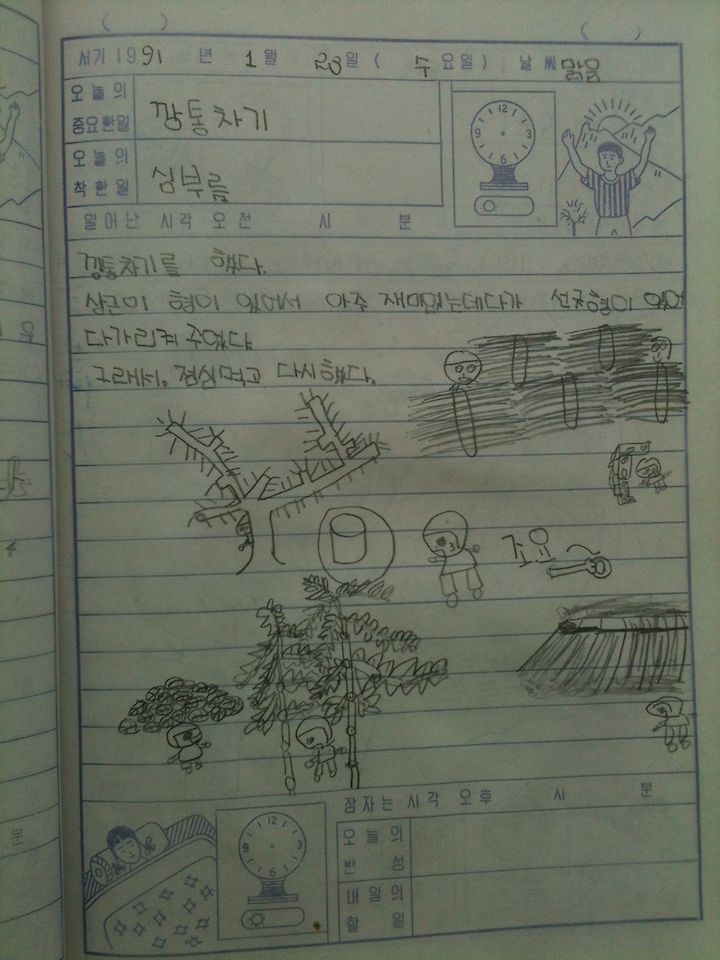 ( ) ( )
서기 1991 년 1 월 23일 ( 수 요일) 날 씨 맑음
오늘의 중요한일 깡통차기
오늘의 착한일 심부름
일어난 시각 오전 시 분
깡통차기를 했다.
상근이 형이 있어서 아주 재미있는데다가 선규형이 있어
다가리켜 주었다
그래서. 점심먹고 다시했다.
조요~
잠자는 시각 오후 시 분
오늘의 반성
내일의 할일